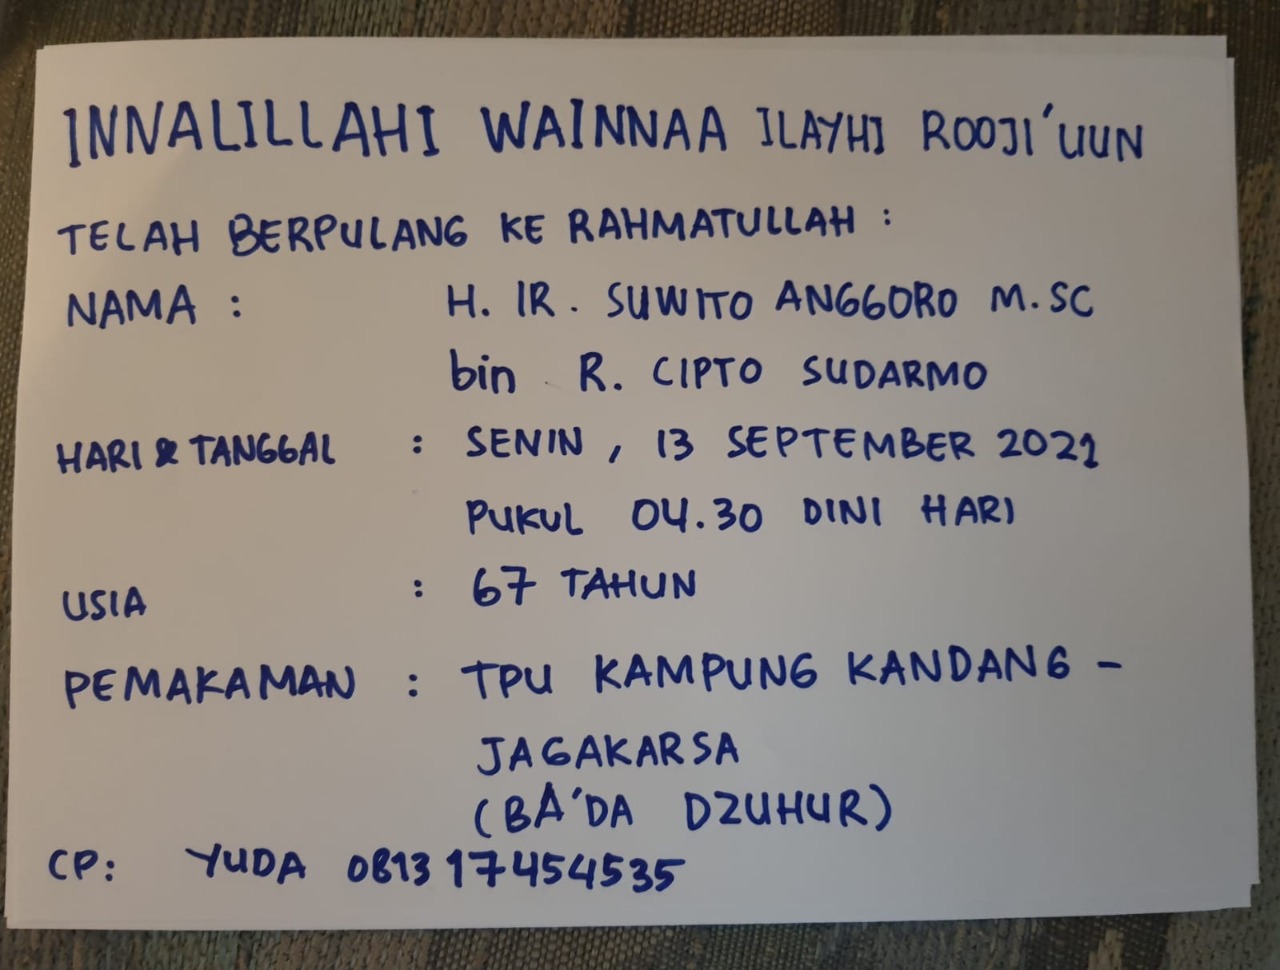 INNALILLAHI WAINNAA ILAYHI ROOJI'UUN
TELAH BERPULANG KE RAHMATULLAH :
NAMA : H. IR. SUWITO ANGGORO M.SC
bin R. CIPTO SUDARMO
HARI & TANGGAL : SENIN, 13 SEPTEMBER 2021
PUKUL 04.30 DINI HARI
USIA : 67 TAHUN
PEMAKAMAN : TPU KAMPUNG KANDANG -
JAGAKARSA
(BA'DA DZUHUR)
CP: YUDA 081317454535